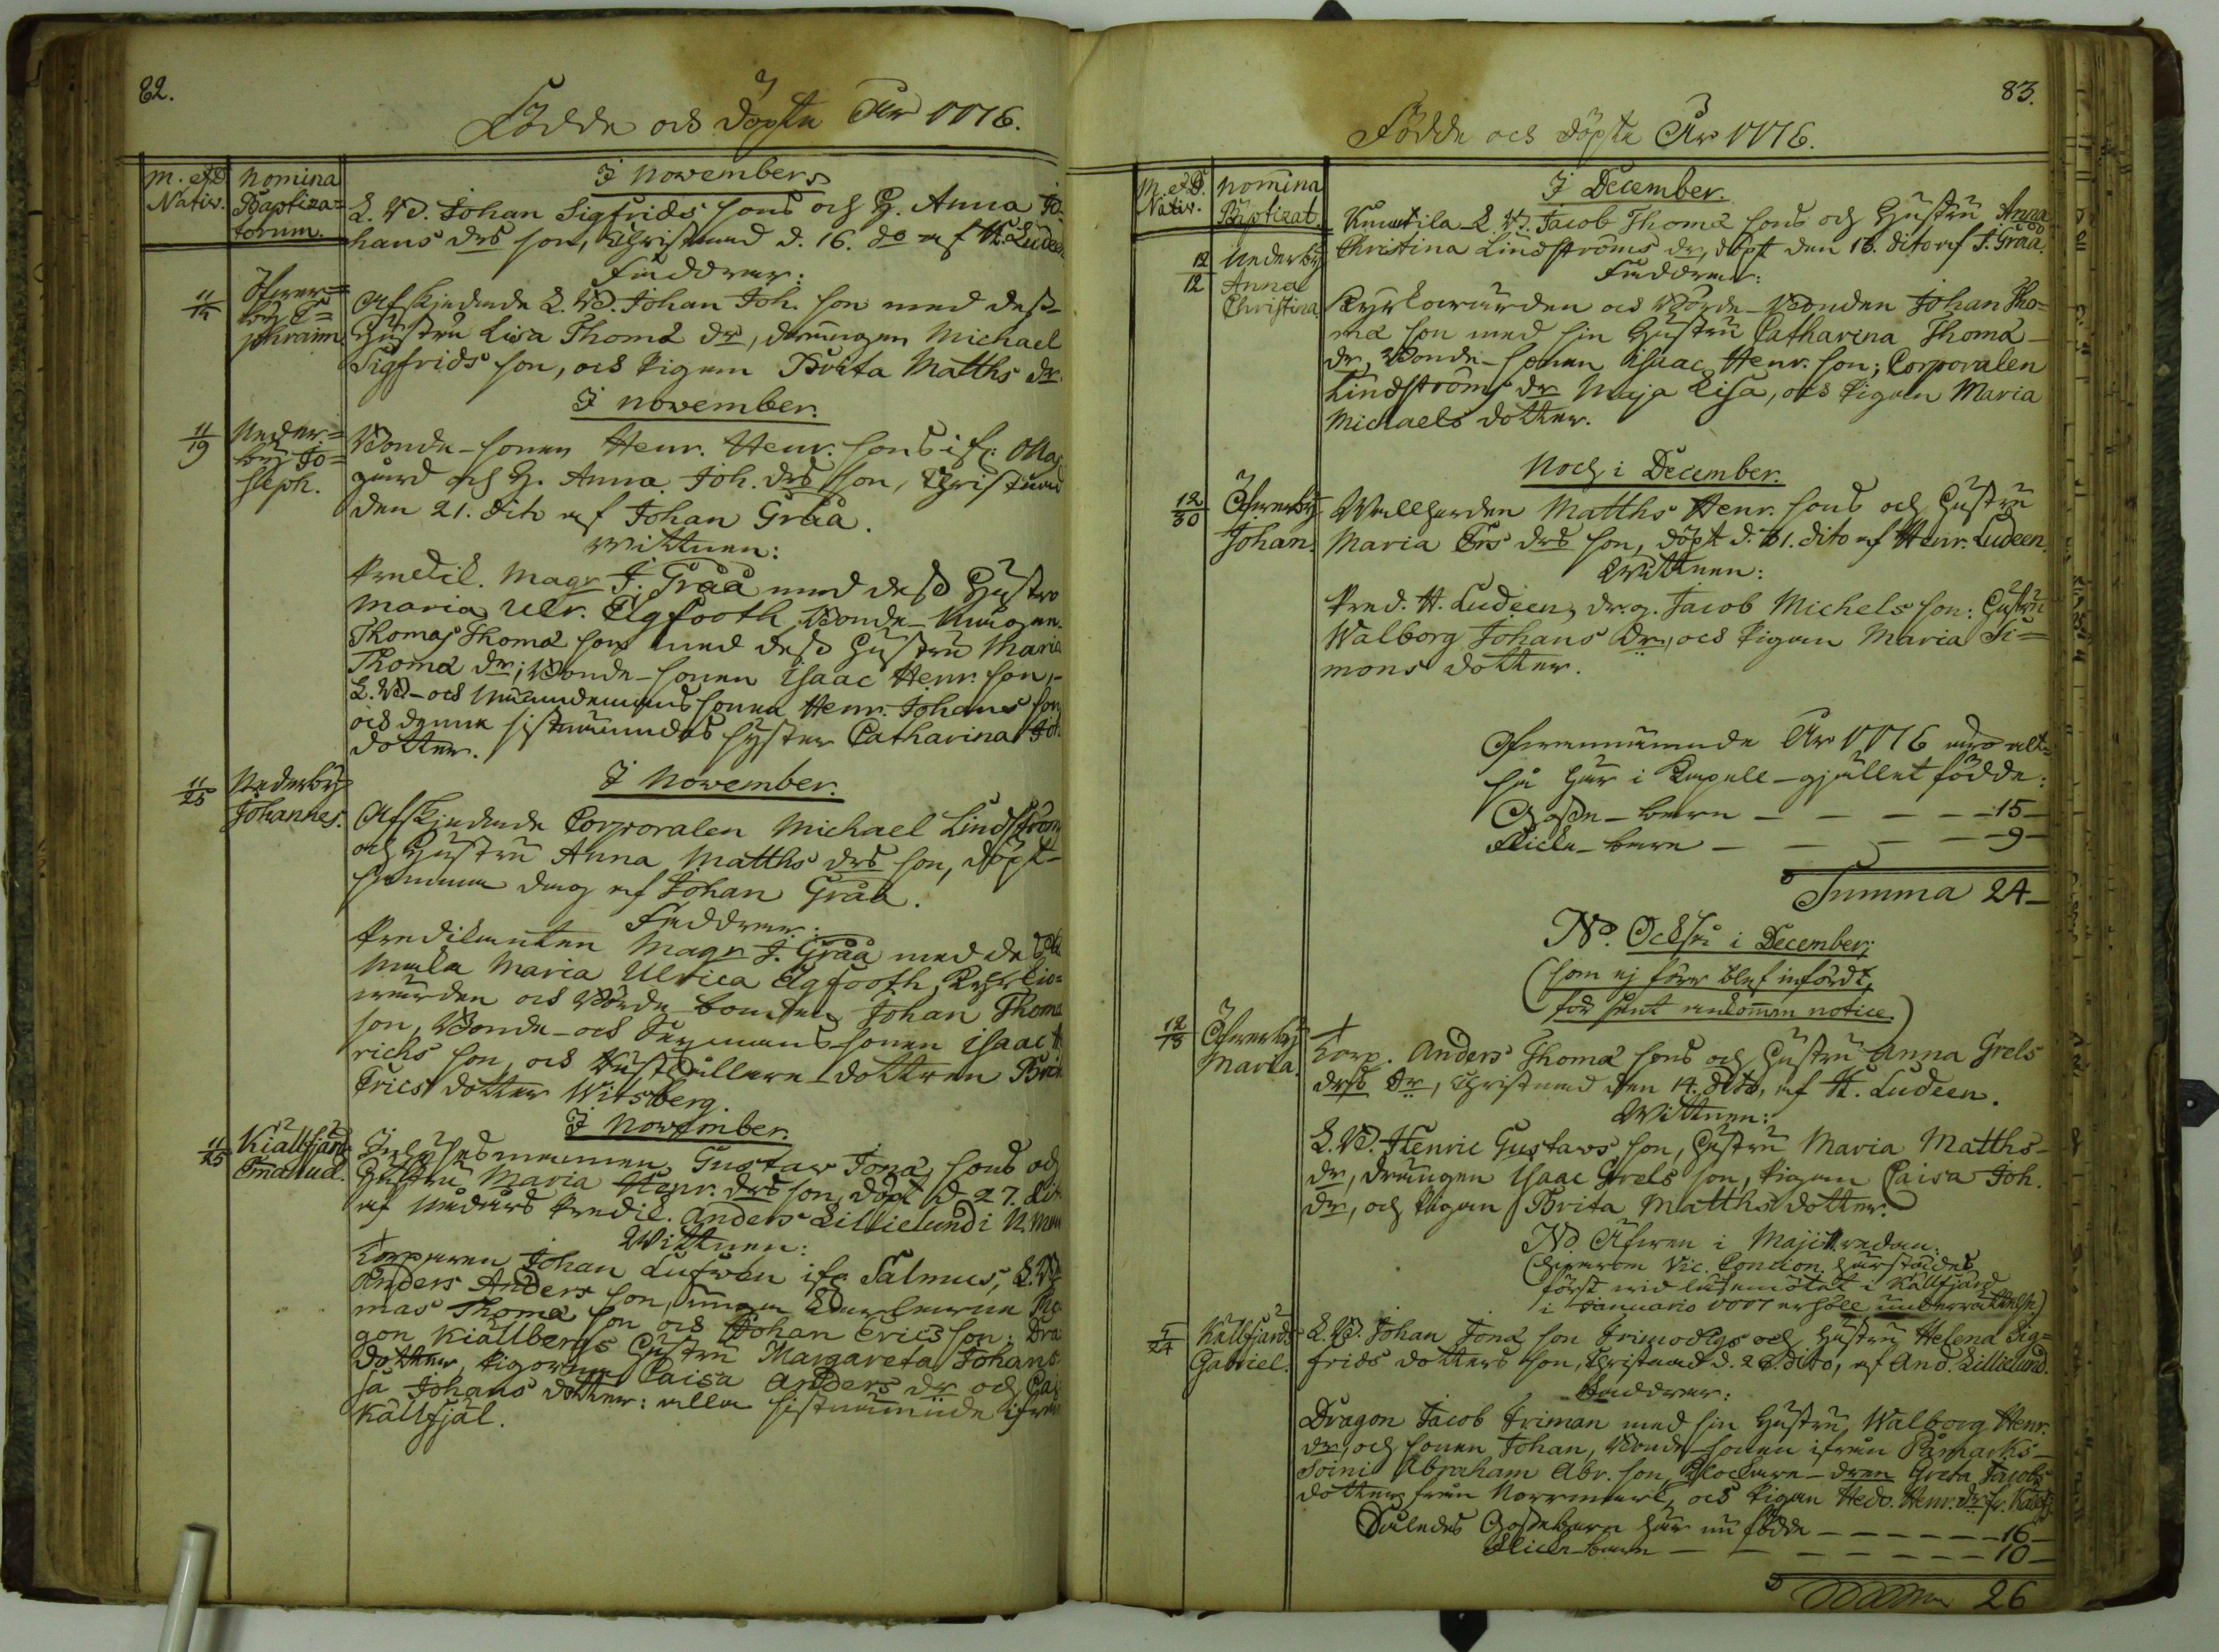 82.
Födde och döpte År 1776.
M. et D. Nativ.
Nomina Baptizatorum.
I November.
L. Bd. Johan Sigfrids sons och H. Anna Jo-
hans drs son, Christnad d. 16. do af H. Ludeen
Faddrar:
11/14
Öfwer=
by E=
phraim.
Afskjedade L. Bd. Johan Joh. son med dess
Hustru Lisa Thomæ dr, drängen Michael
Sigfrids son, och Pigan Brita Matths dr.
I November.
11/19
Neder=
by Jo=
seph.
Bonde-sonen Henr. Henr. sons ifr.
gård och H. Anna Joh. drs son, Christnad
den 21. dito af Johan Gråå.
Wittnen:
Predik. Magr J. Gråå med dess Hustro
Maria Ulr. Elgfooth, Bonde-
Thomas Thomæ son med dess Hustru Maria
Thomæ dr; Bonde-sonen Isaac Henr. son,
L. Bd- och Nämndemans sonen Henr. Johans son
och denne sistnämndes syster Catharina Joh.
dotter.
I November.
11/25
Nederby
Johannes.
Afskjedade Corporalen Michael Lindström
och Hustru Anna Matths drs son, döpt
samma dag af Johan Gråå.
Faddrar:
Predikanten Magr J. Gråå med dess
Maka Maria Ulrica Elgfooth, Kyrkio-
wärden och Bonde-bonden Johan Thomæ
son, Bonde- och Sexmans-sonen Isaac H
richs son, och dottren Brita
Erics dotter Witsberg.
I November.
11/25
Kiällfjärd
Emanuel.
Inhysesmannen Gustav Jonæ sons och
Hustru Maria Henr. drs son, döpt d. 27. dito
af Predik. Anders Lillielund i
Wittnen:
Johan Lufwen ifr. Salmus, L. Bd
Anders Anders son,
mas Thomæ son och Johan Erics son; Dra
gon Kiällbergs Hustru Margareta Johans
dotter, Pigorna Caisa Anders dr och Cai
sa Johans dotter: alla sistnämnde ifrån
Källfjäl.
83.
Födde och döpte År 1776.
M. et D. Nativ.
Nomina Baptizat.
I December.
L. Bd. Jacob Thomæ sons och Hustru Anna
Christina Lindströms dr, döpt den 13. dito af J. Gråå.
Faddrar:
12/12
Nederby
Anna
Christina
Kyrkowärden och Bonde-Bonden Johan Tho=
mæ son med sin Hustru Catharina Thomæ
dr, Bonde-sonen Isaac Henr. son; Corporalen
Lindströms dr Maja Lisa, och Pigan Maria
Michaels dotter.
Noch i December.
12/30
Öfwerby
Johan.
Wallherden Matths Henr. sons och Hustru
Maria Ers drs son, döpt d. 31. dito af Henr. Ludeen.
Wittnen:
Pred. H. Ludeen, drg. Jacob Michels son; Hustru
Walborg Johans dr, och Pigan Maria Si=
mons dotter.
Ofwannämnde År 1776 äro alt=
så här i Capell-gjället födde:
Gosse-barn — — — — 15
Flicke-barn — — — — 9
Summa 24
NB. Också i December;
(som ej förr blef infördt,
för sent ankommen notice.)
12/13
Öfwerby
Maria.
Korp. Anders Thomæ sons och Hustru Anna Grels
drs dr, Christnad den 14. dito, af H. Ludeen.
Wittnen:
L. Bd. Henric Gustavs son, Hustru Maria Matths
dr, drängen Isaac Grels son, Pigan Caisa Joh.
dr, och Pigan Brita Matths dotter.
NB Äfwen i Maji redan:
(hwarom Vic. Concion. härstädes
först wid läsemötet i Källfjärd
i Januario 1777 erhöll underrättelse.)
5/24
Källfjärd
Gabriel.
L. Bd. Johan Jonæ son Frimodigs och Hustru Helena Sig=
frids dotters son, Christnad d. 26 dito, af And. Lillielund.
Faddrar:
Dragon Jacob Friman med sin Hustru Walborg Henr.
dr, och sonen Johan, Bonde-sonen ifrån Påmarks-
Soini Abraham Abr. son, Klockare-dren Greta Jacobs
dotter från Norrmark, och Pigan Hedv. Henr. dr fr. Källfj.
Således Gossebarn här nu födde — — — — 16
Flicke-barn — — — — 10
Summa 26